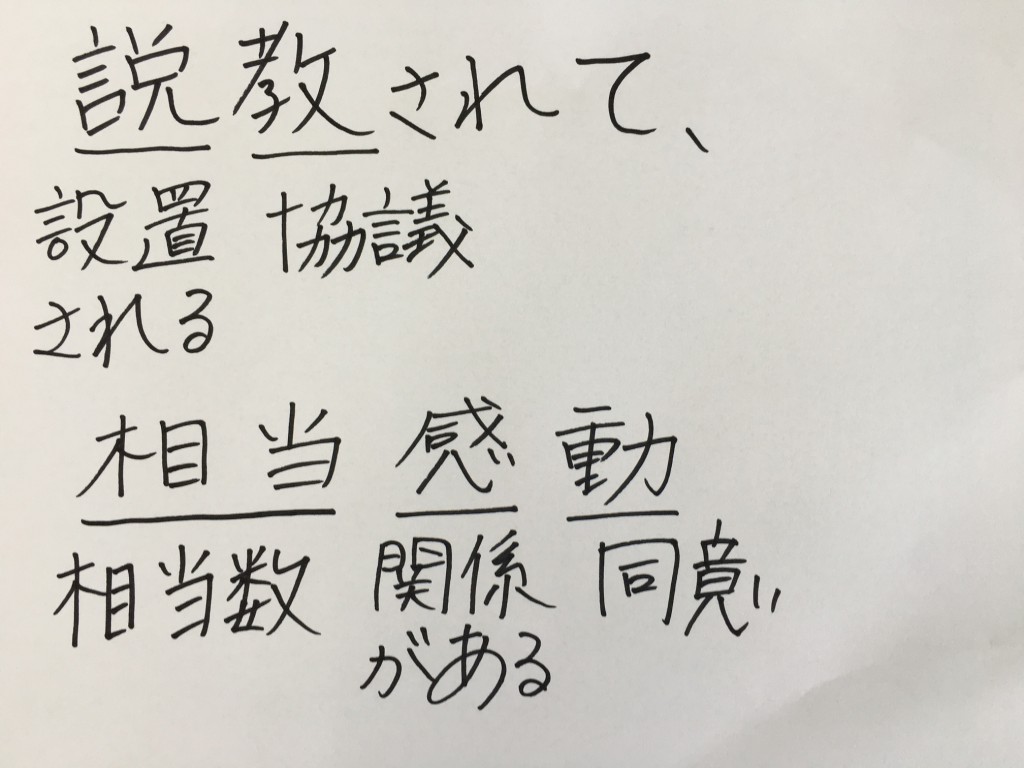 説教されて、
設置 協議
される
相当 感動
相当数 関係 同意
がある